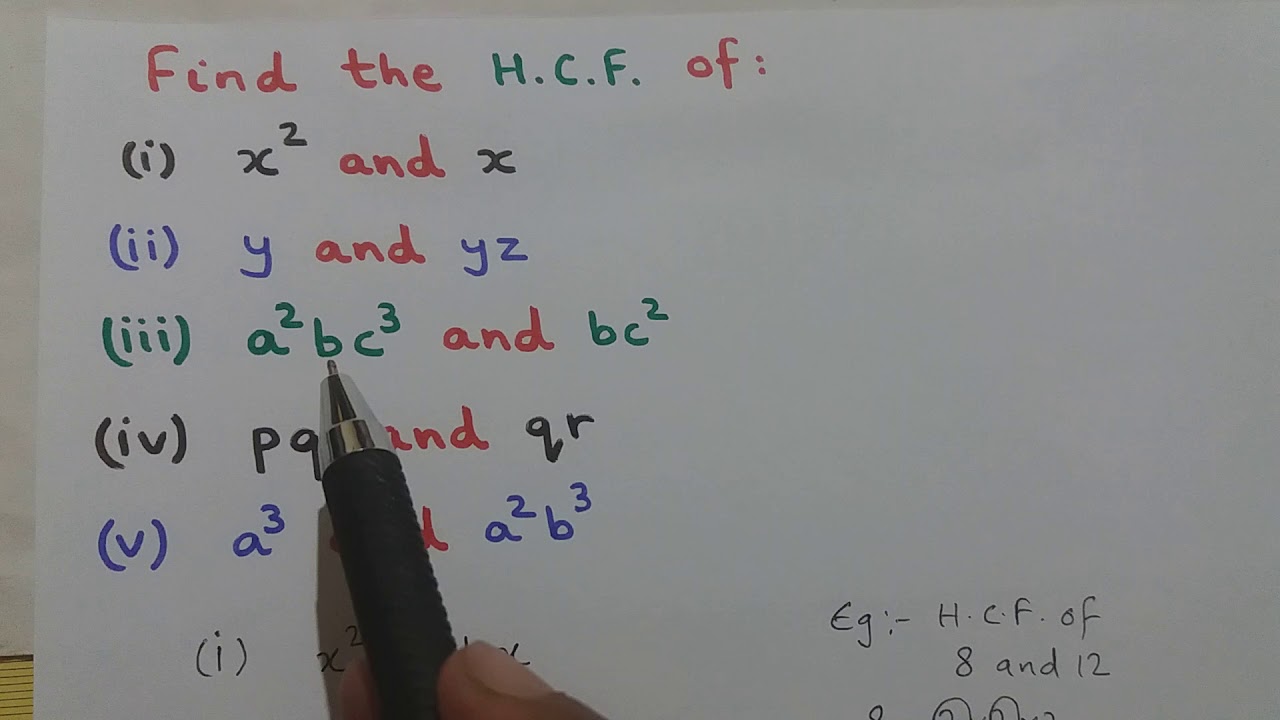 Find the H.C.F. of:
(i) x² and x
(ii) y and yz
(iii) a²bc³ and bc²
(iv) pq and qr
(v) a³ a²b³
(i) x² x
Eg:- H.C.F. of
8 and 12